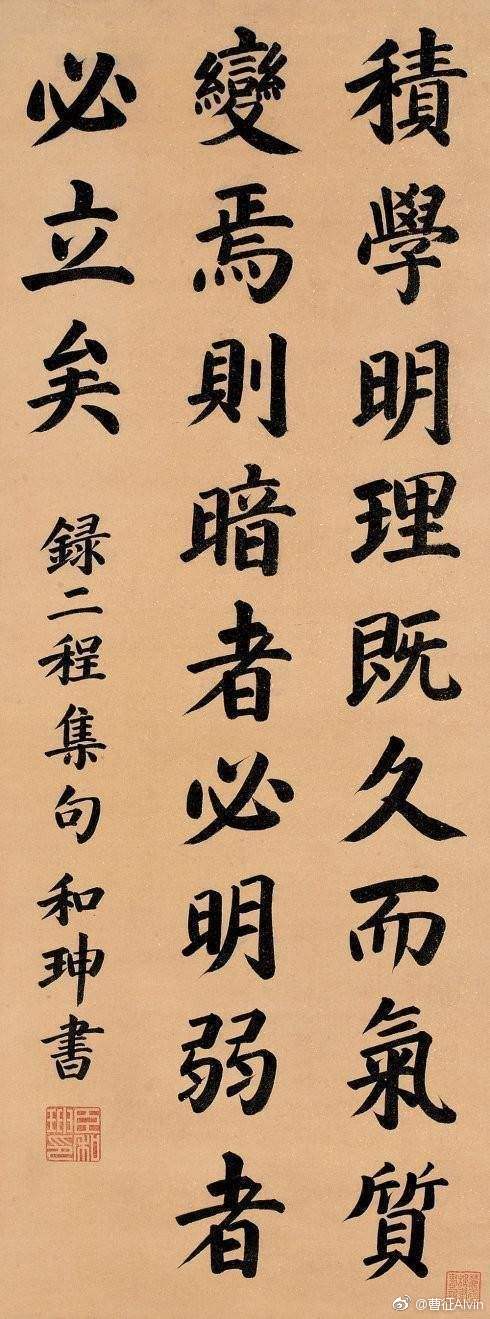 積學明理既久而氣質
變焉則暗者必明弱者
必立矣
録二程集句 和珅書
@曹征Alvin